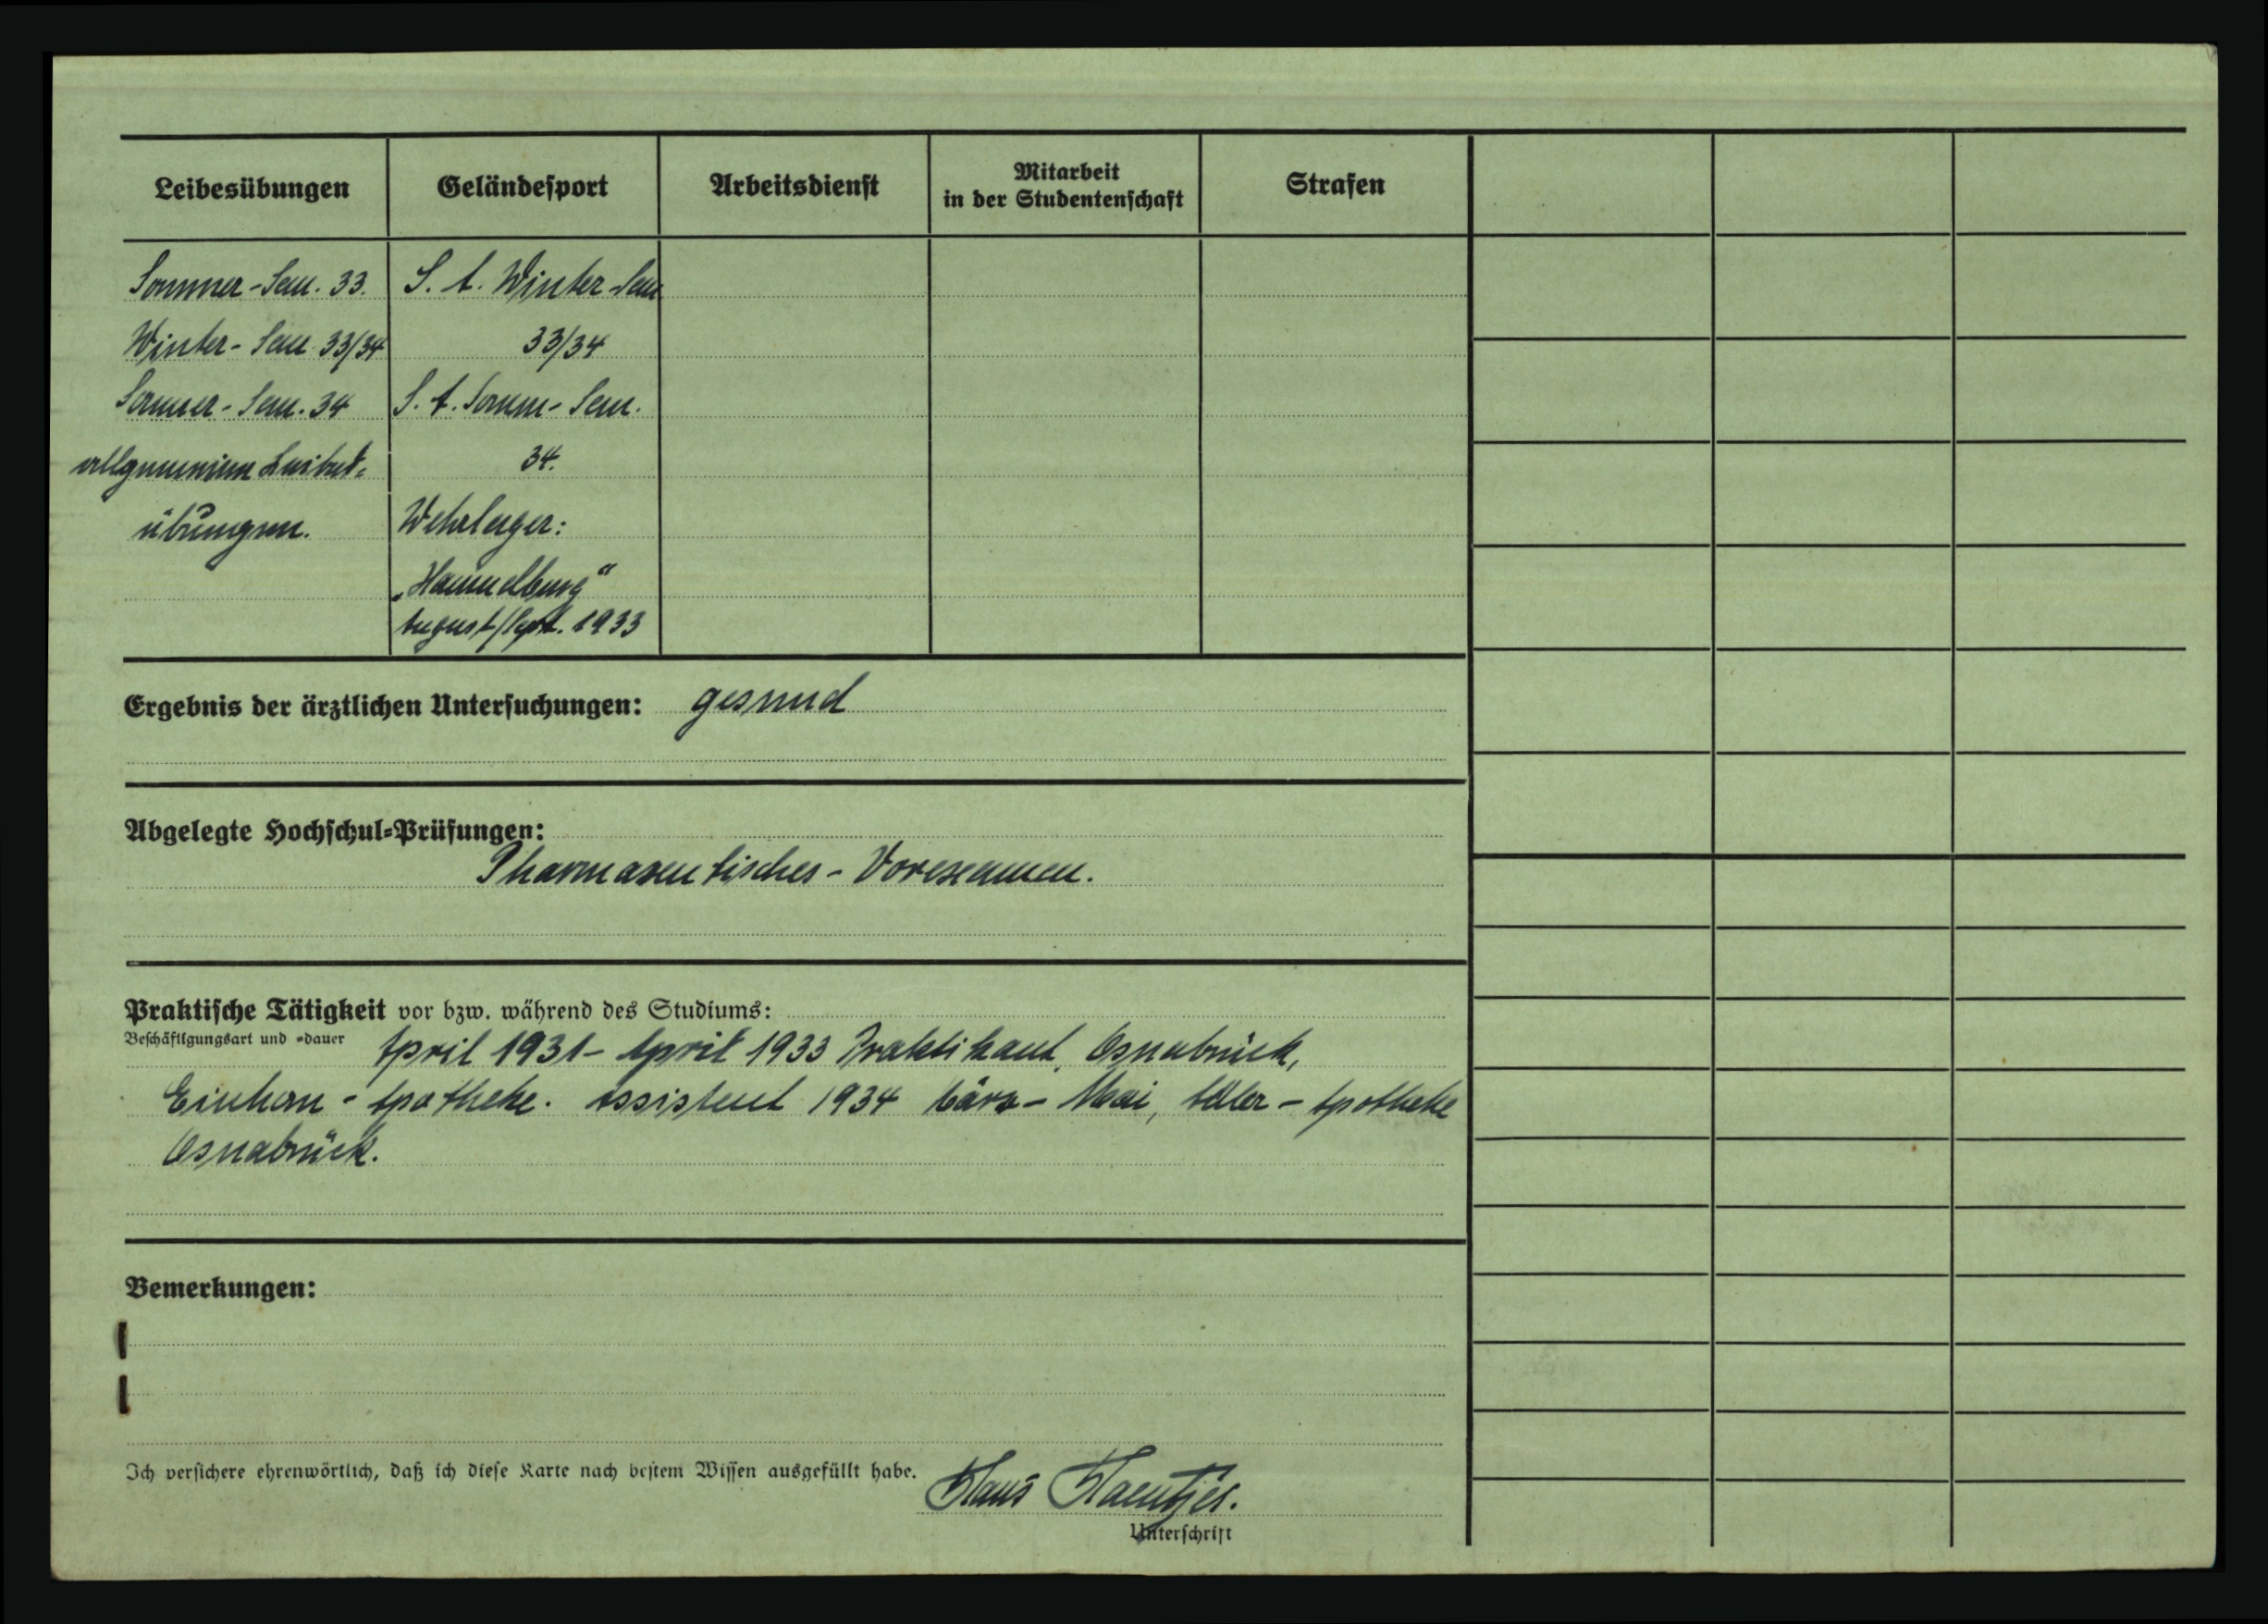 Leibesübungen
Geländesport
Arbeitsdienst
Mitarbeit
in der Studentenschaft
Strafen
Sommer-Sem. 33.
Winter-Sem 33/34
Sommer-Sem. 34
allgemeine Leibes-
übungen.
S. A. Winter-Sem
33/34
S. A. Somm-Sem.
34.
Wehrlager:
„Hammelburg“
August/Sept. 1933
Ergebnis der ärztlichen Untersuchungen: gesund
Abgelegte Hochschul-Prüfungen:
Pharmazeutisches-Vorexamen.
Praktische Tätigkeit vor bzw. während des Studiums:
Beschäftigungsart und -dauer April 1931 - April 1933 Praktikant, Osnabrück,
Einhorn-Apotheke. Assistent 1934 März - Mai, Adler-Apotheke
Osnabrück.
Bemerkungen:
Ich versichere ehrenwörtlich, daß ich diese Karte nach bestem Wissen ausgefüllt habe. Hans Haentjes.
Unterschrift